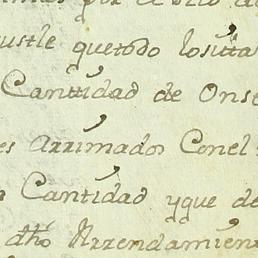 ustle quetodo
Cantidad de Onse
es arrimados Conel
Cantidad yque de
dho Arrendamien